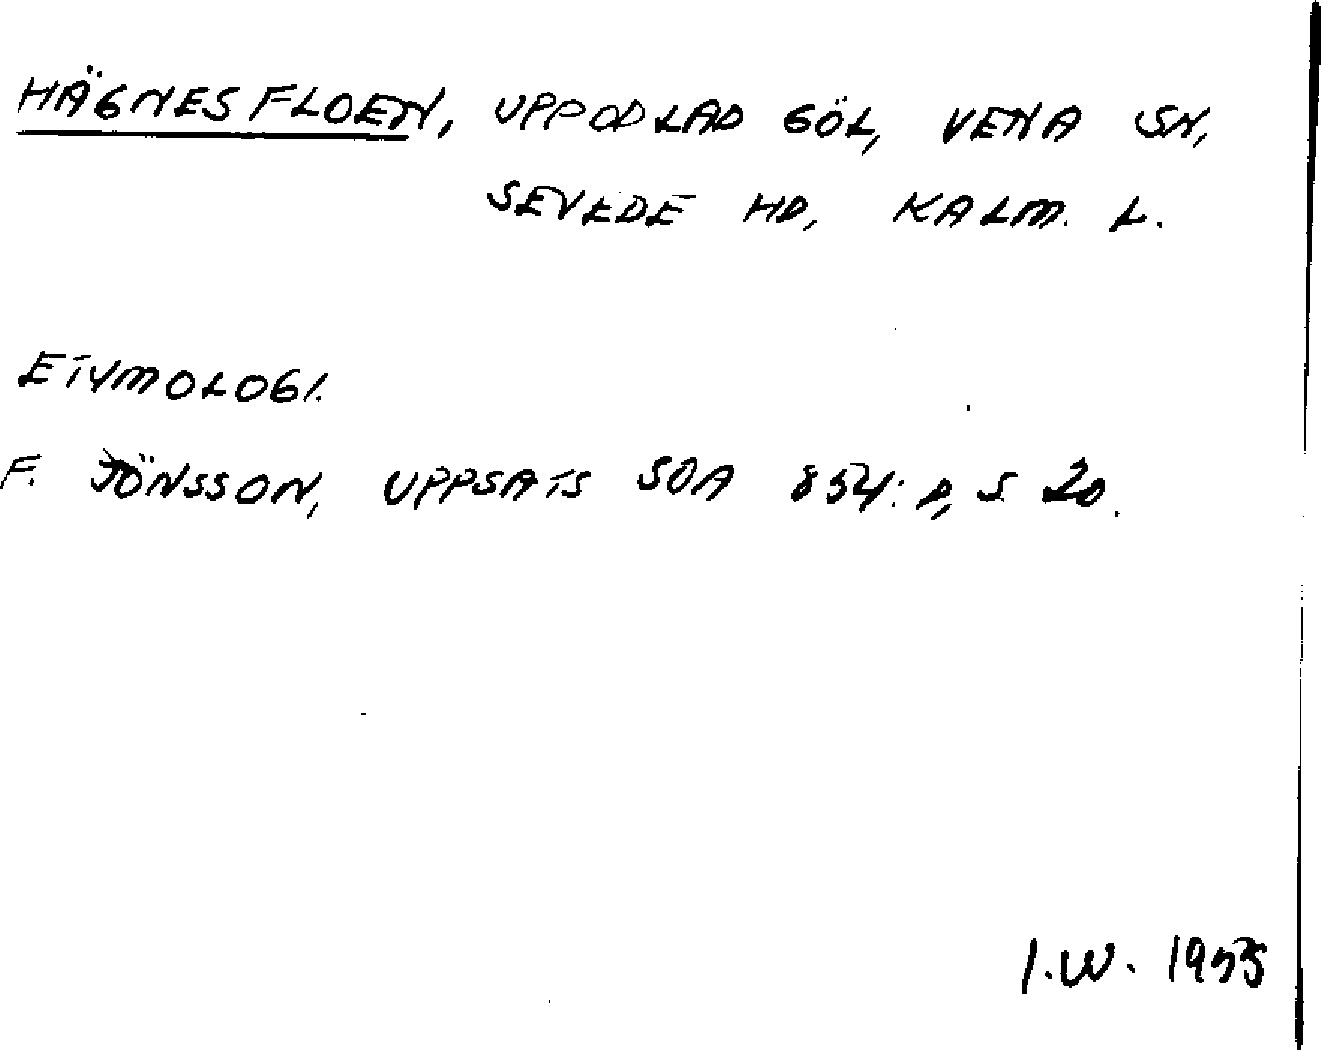 HÄGNESFLOEN, UPPODLAD GÖL, VENA SN,
SEVEDE HD, KALM. L.
ETYMOLOGI.
F. JÖNSSON, UPPSATS SOA 854: D, S 20.
I.W. 1955